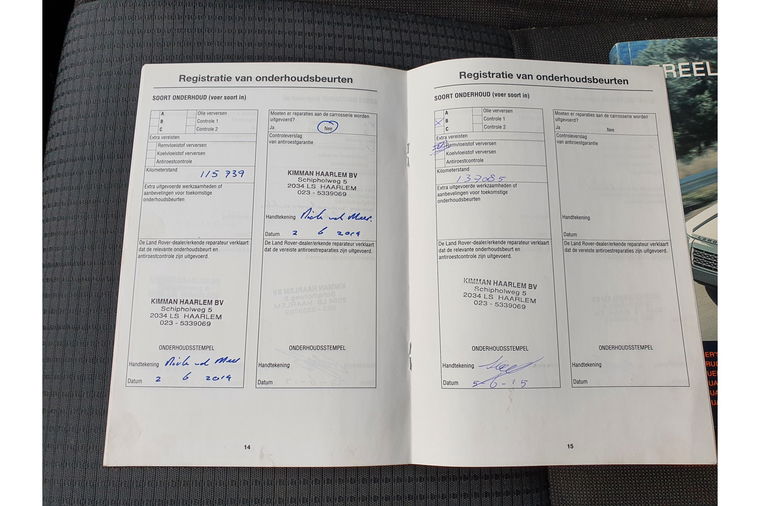 Registratie van onderhoudsbeurten
SOORT ONDERHOUD (voer soort in)
A Olie verversen
B Controle 1
C Controle 2
Extra vereisten
Remvloeistof verversen
Koelvloeistof verversen
Antiroestcontrole
Kilometerstand
115 739
Extra uitgevoerde werkzaamheden of
aanbevelingen voor toekomstige
onderhoudsbeurten
De Land Rover-dealer/erkende reparateur verklaart
dat de relevante onderhoudsbeurt en
antiroestcontrole zijn uitgevoerd.
KIMMAN HAARLEM BV
Schipholweg 5
2034 LS HAARLEM
023 - 5339069
ONDERHOUDSSTEMPEL
Handtekening
Datum 2 6 2014
Moeten er reparaties aan de carrosserie worden
uitgevoerd?
Ja Nee
Controleverslag
van antiroestgarantie
KIMMAN HAARLEM BV
Schipholweg 5
2034 LS HAARLEM
023 - 5339069
Handtekening
Datum 2 6 2014
De Land Rover-dealer/erkende reparateur verklaart
dat de vereiste antiroestreparaties zijn uitgevoerd.
ONDERHOUDSSTEMPEL
Handtekening
Datum
14
Registratie van onderhoudsbeurten
SOORT ONDERHOUD (voer soort in)
A Olie verversen
B Controle 1
C Controle 2
Extra vereisten
Remvloeistof verversen
Koelvloeistof verversen
Antiroestcontrole
Kilometerstand
137085
Extra uitgevoerde werkzaamheden of
aanbevelingen voor toekomstige
onderhoudsbeurten
De Land Rover-dealer/erkende reparateur verklaart
dat de relevante onderhoudsbeurt en
antiroestcontrole zijn uitgevoerd.
KIMMAN HAARLEM BV
Schipholweg 5
2034 LS HAARLEM
023 - 5339069
ONDERHOUDSSTEMPEL
Handtekening
Datum 5-6-15
Moeten er reparaties aan de carrosserie worden
uitgevoerd?
Ja Nee
Controleverslag
van antiroestgarantie
Handtekening
Datum
De Land Rover-dealer/erkende reparateur verklaart
dat de vereiste antiroestreparaties zijn uitgevoerd.
ONDERHOUDSSTEMPEL
Handtekening
Datum
15
FREEL